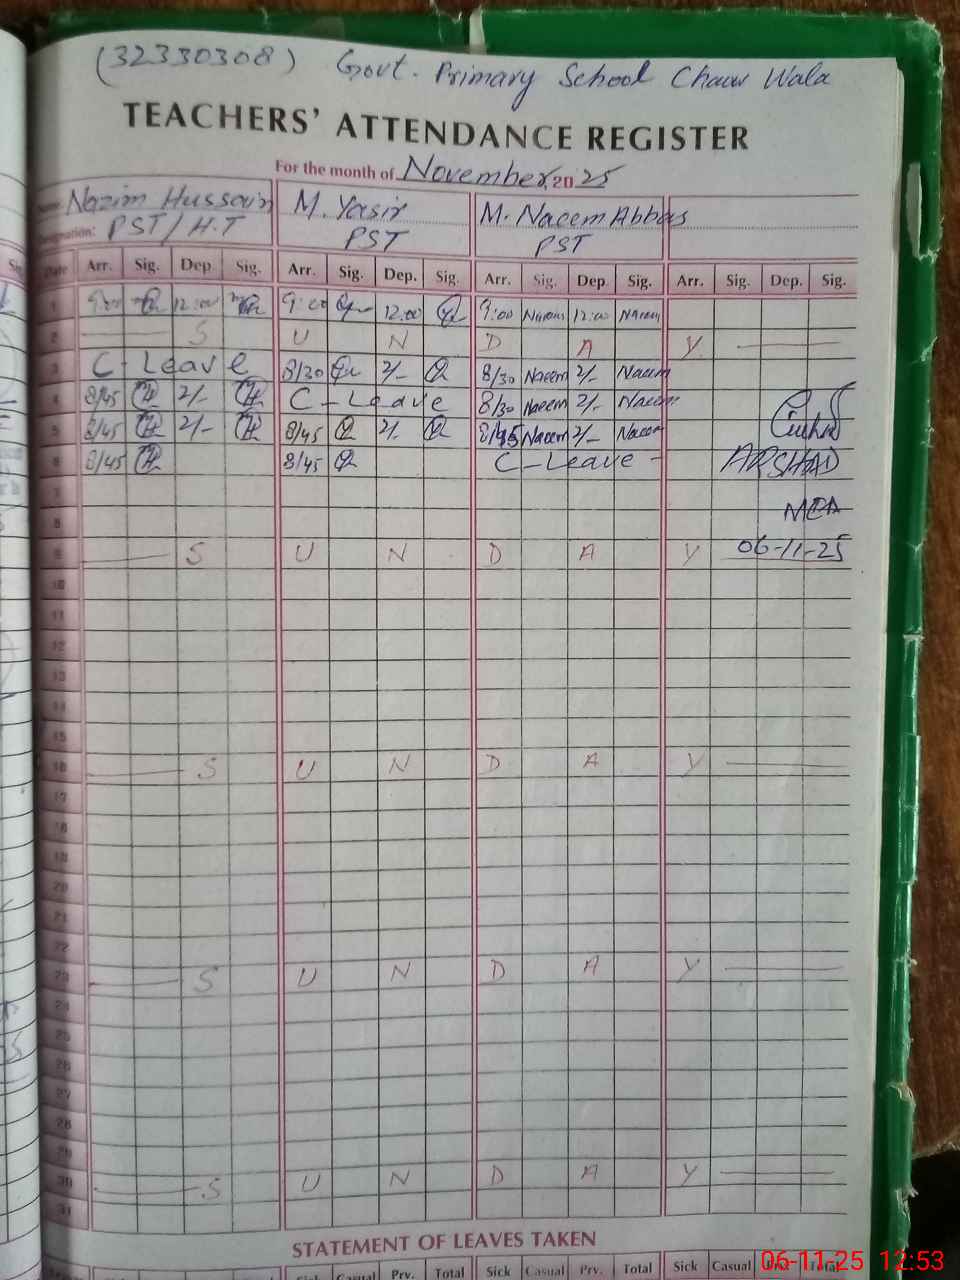 (32330308) Govt. Primary School Chaur Wala
TEACHERS' ATTENDANCE REGISTER
For the month of November 2025
Name Nazim Hussain M. Yasir M. Naeem Abbas
Designation: PST/H.T PST PST
Date Arr. Sig. Dep. Sig. Arr. Sig. Dep. Sig. Arr. Sig. Dep. Sig. Arr. Sig. Dep. Sig.
1 9:00 12:00 9:00 12:00 9:00 Naeem 12:00 Naeem
2 S U N D A Y
3 C-Leave 8/30 2/- 8/30 Naeem 2/- Naeem
4 8/45 2/- C-Leave 8/30 Naeem 2/- Naeem
5 8/45 2/- 8/45 2/- 8/45 Naeem 2/- Naeem
6 8/45 8/45 C-Leave - ARSHAD
7
8 MEA
9 S U N D A Y 06-11-25
10
11
12
13
14
15
16 S U N D A Y
17
18
19
20
21
22
23 S U N D A Y
24
25
26
27
28
29
30 S U N D A Y
31
STATEMENT OF LEAVES TAKEN
Casual Prv. Total Sick Casual Prv. Total Sick Casual Total
06-11-25 12:53